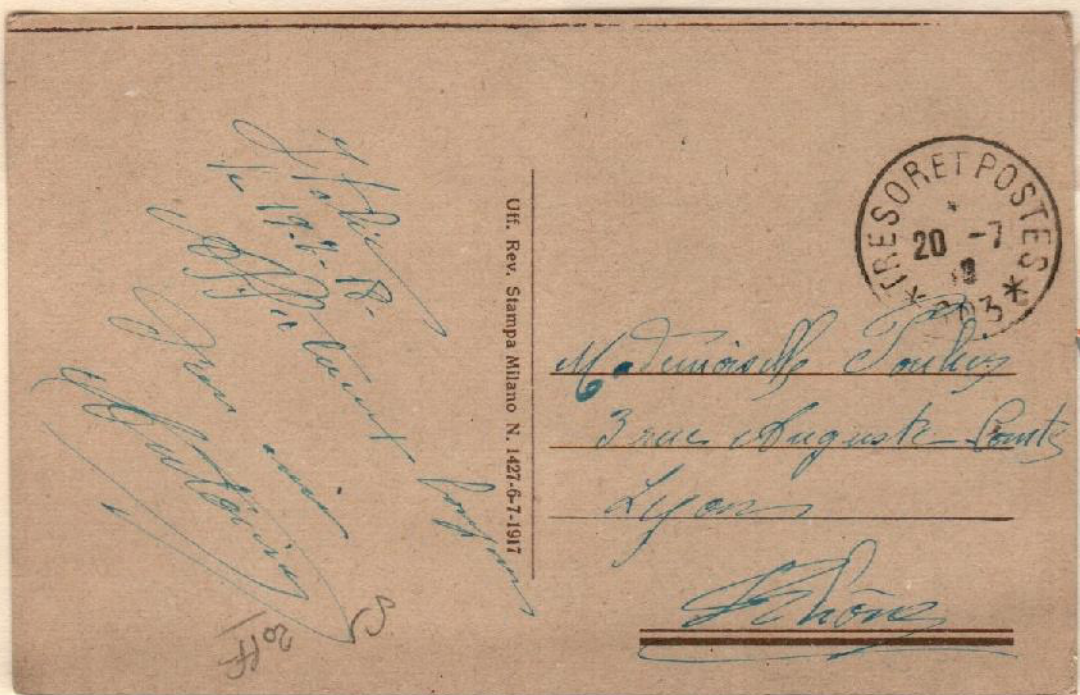 Italie
le 19.7-18.
Affectueux bonjour
Gros amis
Antoine
Uff. Rev. Stampa Milano N. 1427-6-7-1917
*TRESOR ET POSTES*
20 -7
18
Mademoiselle
3 rue Auguste Comte
Lyon
Rhône
20FF